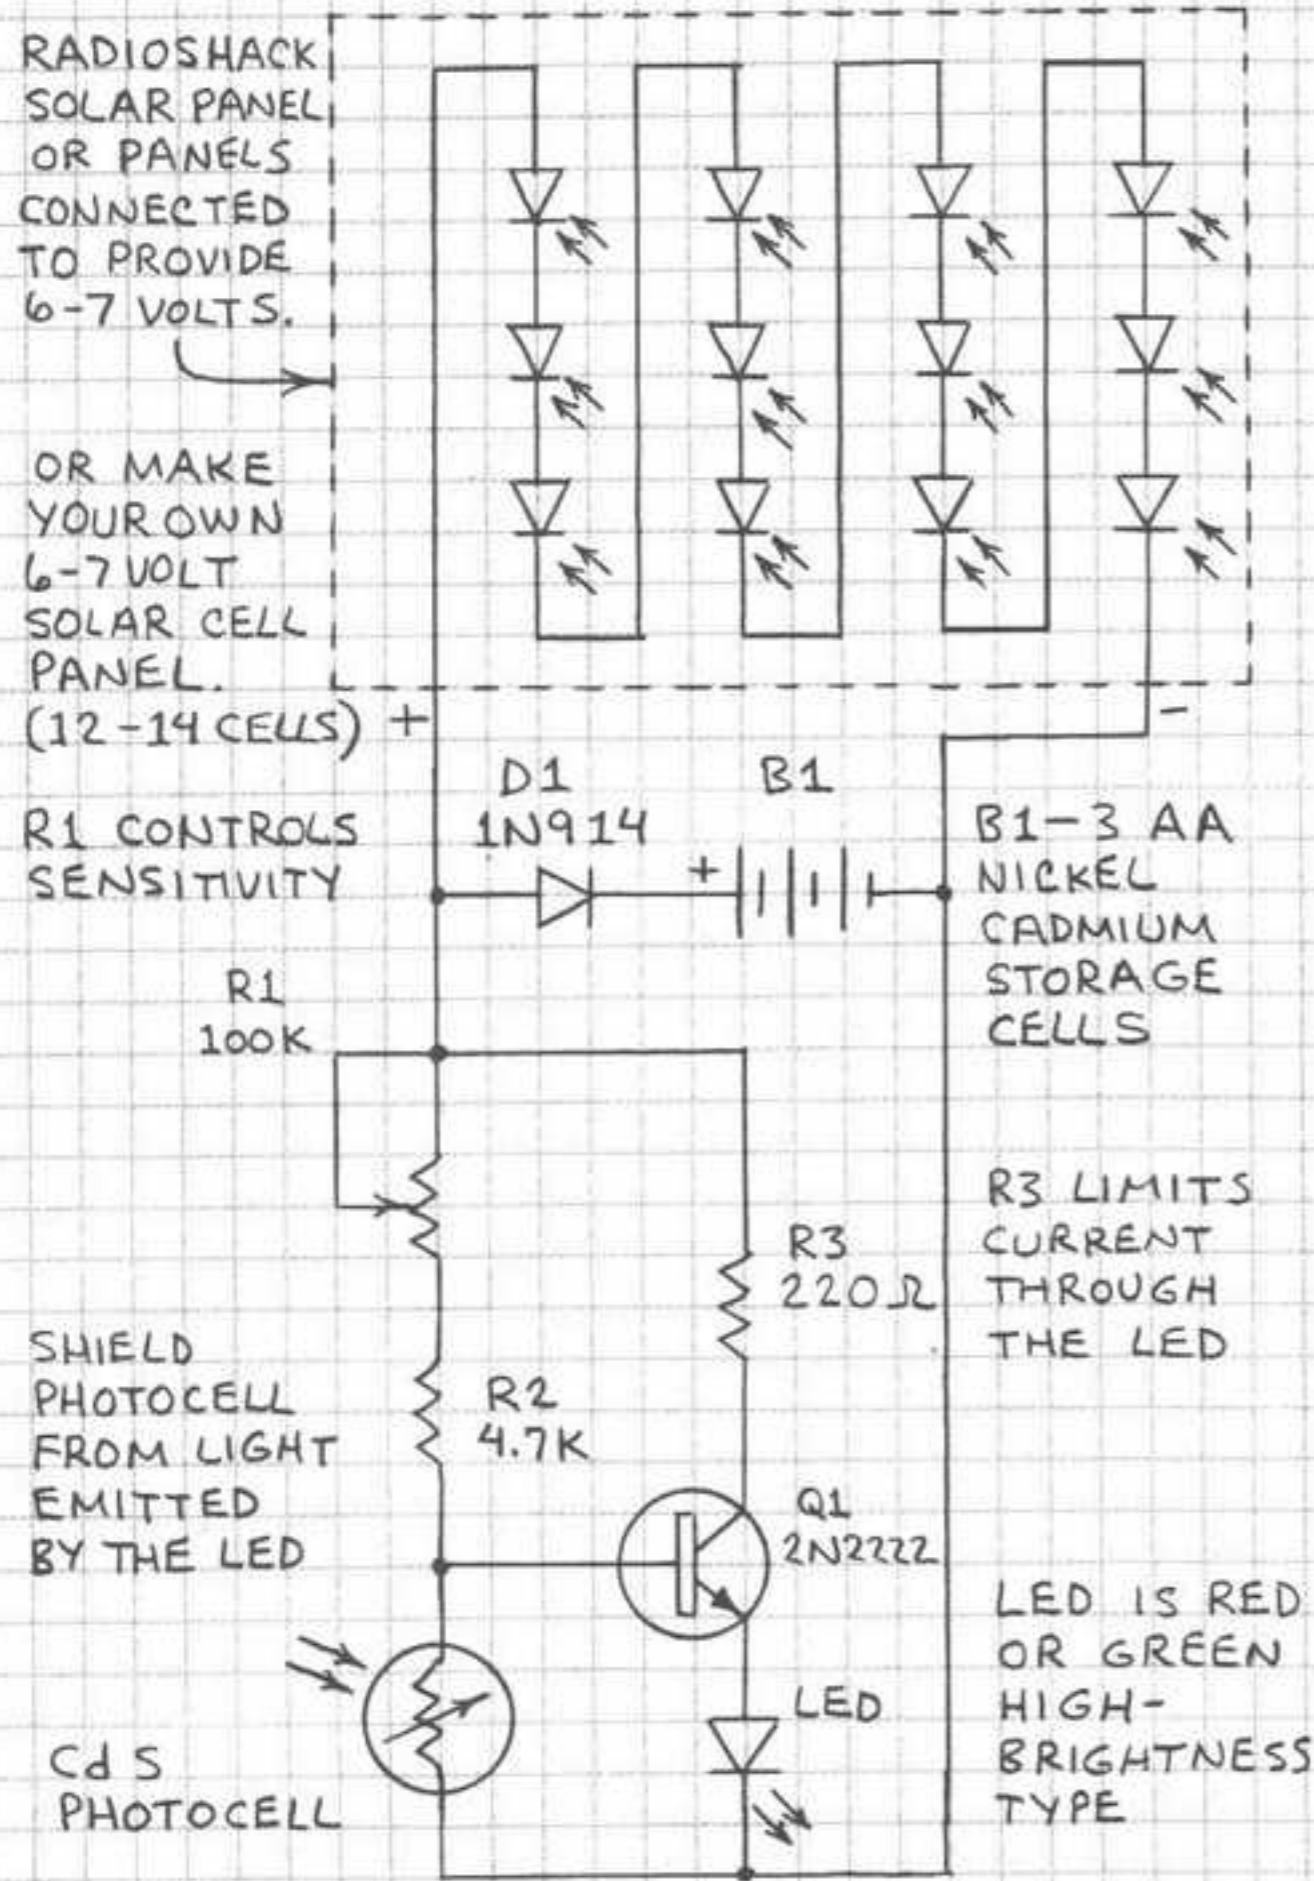 RADIOSHACK
SOLAR PANEL
OR PANELS
CONNECTED
TO PROVIDE
6-7 VOLTS.
OR MAKE
YOUR OWN
6-7 VOLT
SOLAR CELL
PANEL.
(12-14 CELLS) +
-
D1
1N914
B1
+
R1 CONTROLS
SENSITIVITY
B1-3 AA
NICKEL
CADMIUM
STORAGE
CELLS
R1
100K
R3
220Ω
R3 LIMITS
CURRENT
THROUGH
THE LED
SHIELD
PHOTOCELL
FROM LIGHT
EMITTED
BY THE LED
R2
4.7K
Q1
2N2222
LED IS RED
OR GREEN
HIGH-
BRIGHTNESS
TYPE
LED
CdS
PHOTOCELL